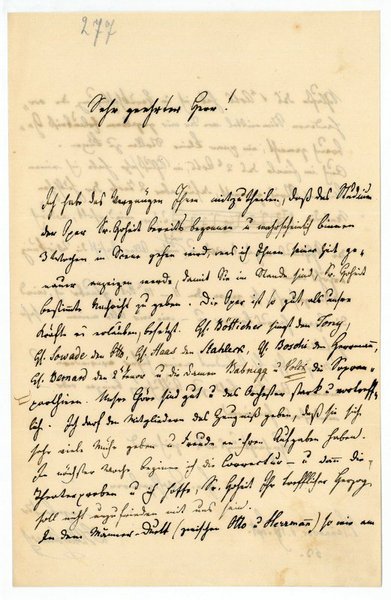 277
Sehr geehrter Herr!
Ich habe das Vergnügen Ihnen mitzutheilen, daß das Studium
der Oper Sr. Hoheit bereits begonnen u wahrscheinlich binnen
3 Wochen in Scene gehen wird, was ich Ihnen seiner Zeit ge-
nauer anzeigen werde, damit Sie im Stande sind, Sr. Hoheit
bestimmte Nachricht zu geben. Die Oper ist so gut, als unsere
Kräfte es erlauben, besetzt. H. Bötticher singt den Tony,
H. Sowade den Otto, H. Haas den Stahleck, H. Boschi den Herrmann,
H. Bernard den 2 Tenor u die Damen Babnigg u Voltz die Sopran-
parthieen. Unser Chor sind gut u das Orchester stark u vortreff-
lich. Ich darf den Mitgliedern das Zeugniß geben, daß sie sich
sehr viele Mühe geben u Freude an ihren Aufgaben haben.
In nächster Woche beginne ich die Correctur- u dann die
Theaterproben u ich hoffe, Sr. Hoheit Ihr trefflicher Herzog
soll nicht unzufrieden mit uns sein.
In dem Männer-Duett (zwischen Otto u Herrmann) so wie am